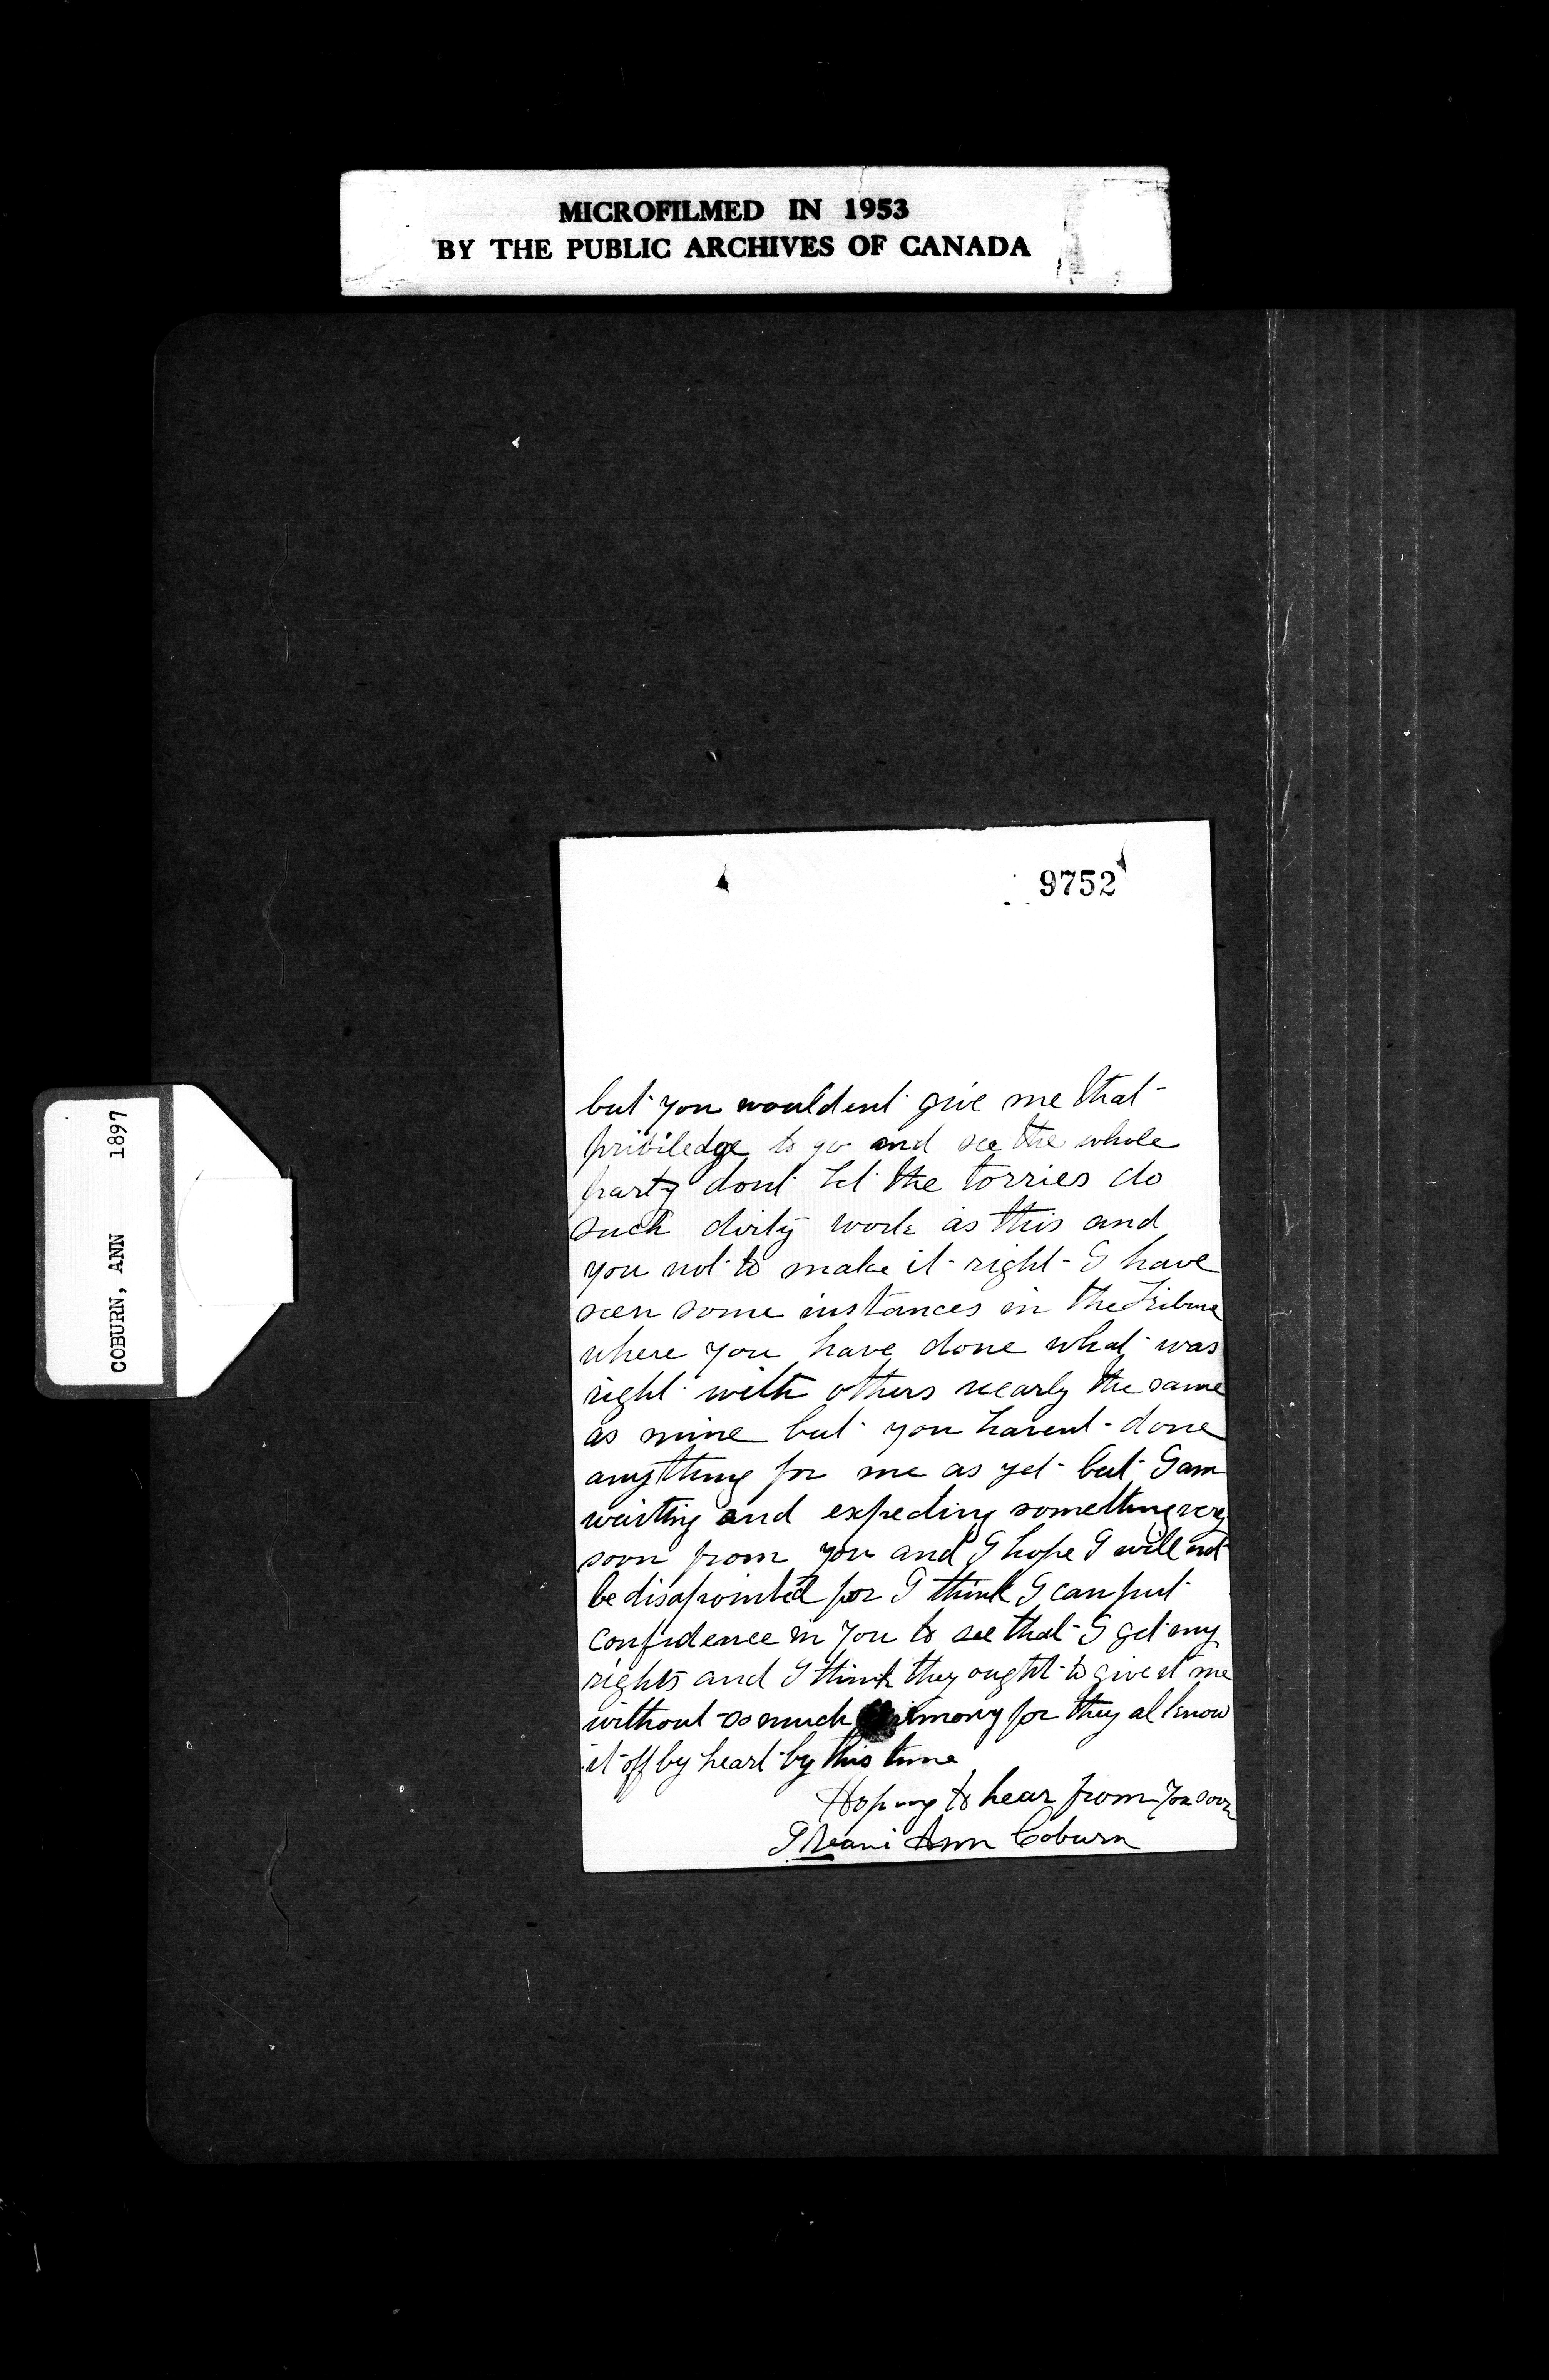 MICROFILMED IN 1953
BY THE PUBLIC ARCHIVES OF CANADA
COBURN, ANN 1897
9752
but you wouldent give me that
priviledge to go and see the whole
party dont let the torries do
such dirty work as this and
you not to make it right I have
seen some instances in the Tribune
where you have done what was
right with others nearly the same
as mine but you havent done
anything for me as yet but I am
waiting and expecting something very
soon from you and I hope I will not
be disapointed for I think I can put
confidence in you to see that I get my
rights and I think they ought to give it me
without so much for they al know
it off by heart by this time
Hoping to hear from you soon
Ann Coburn